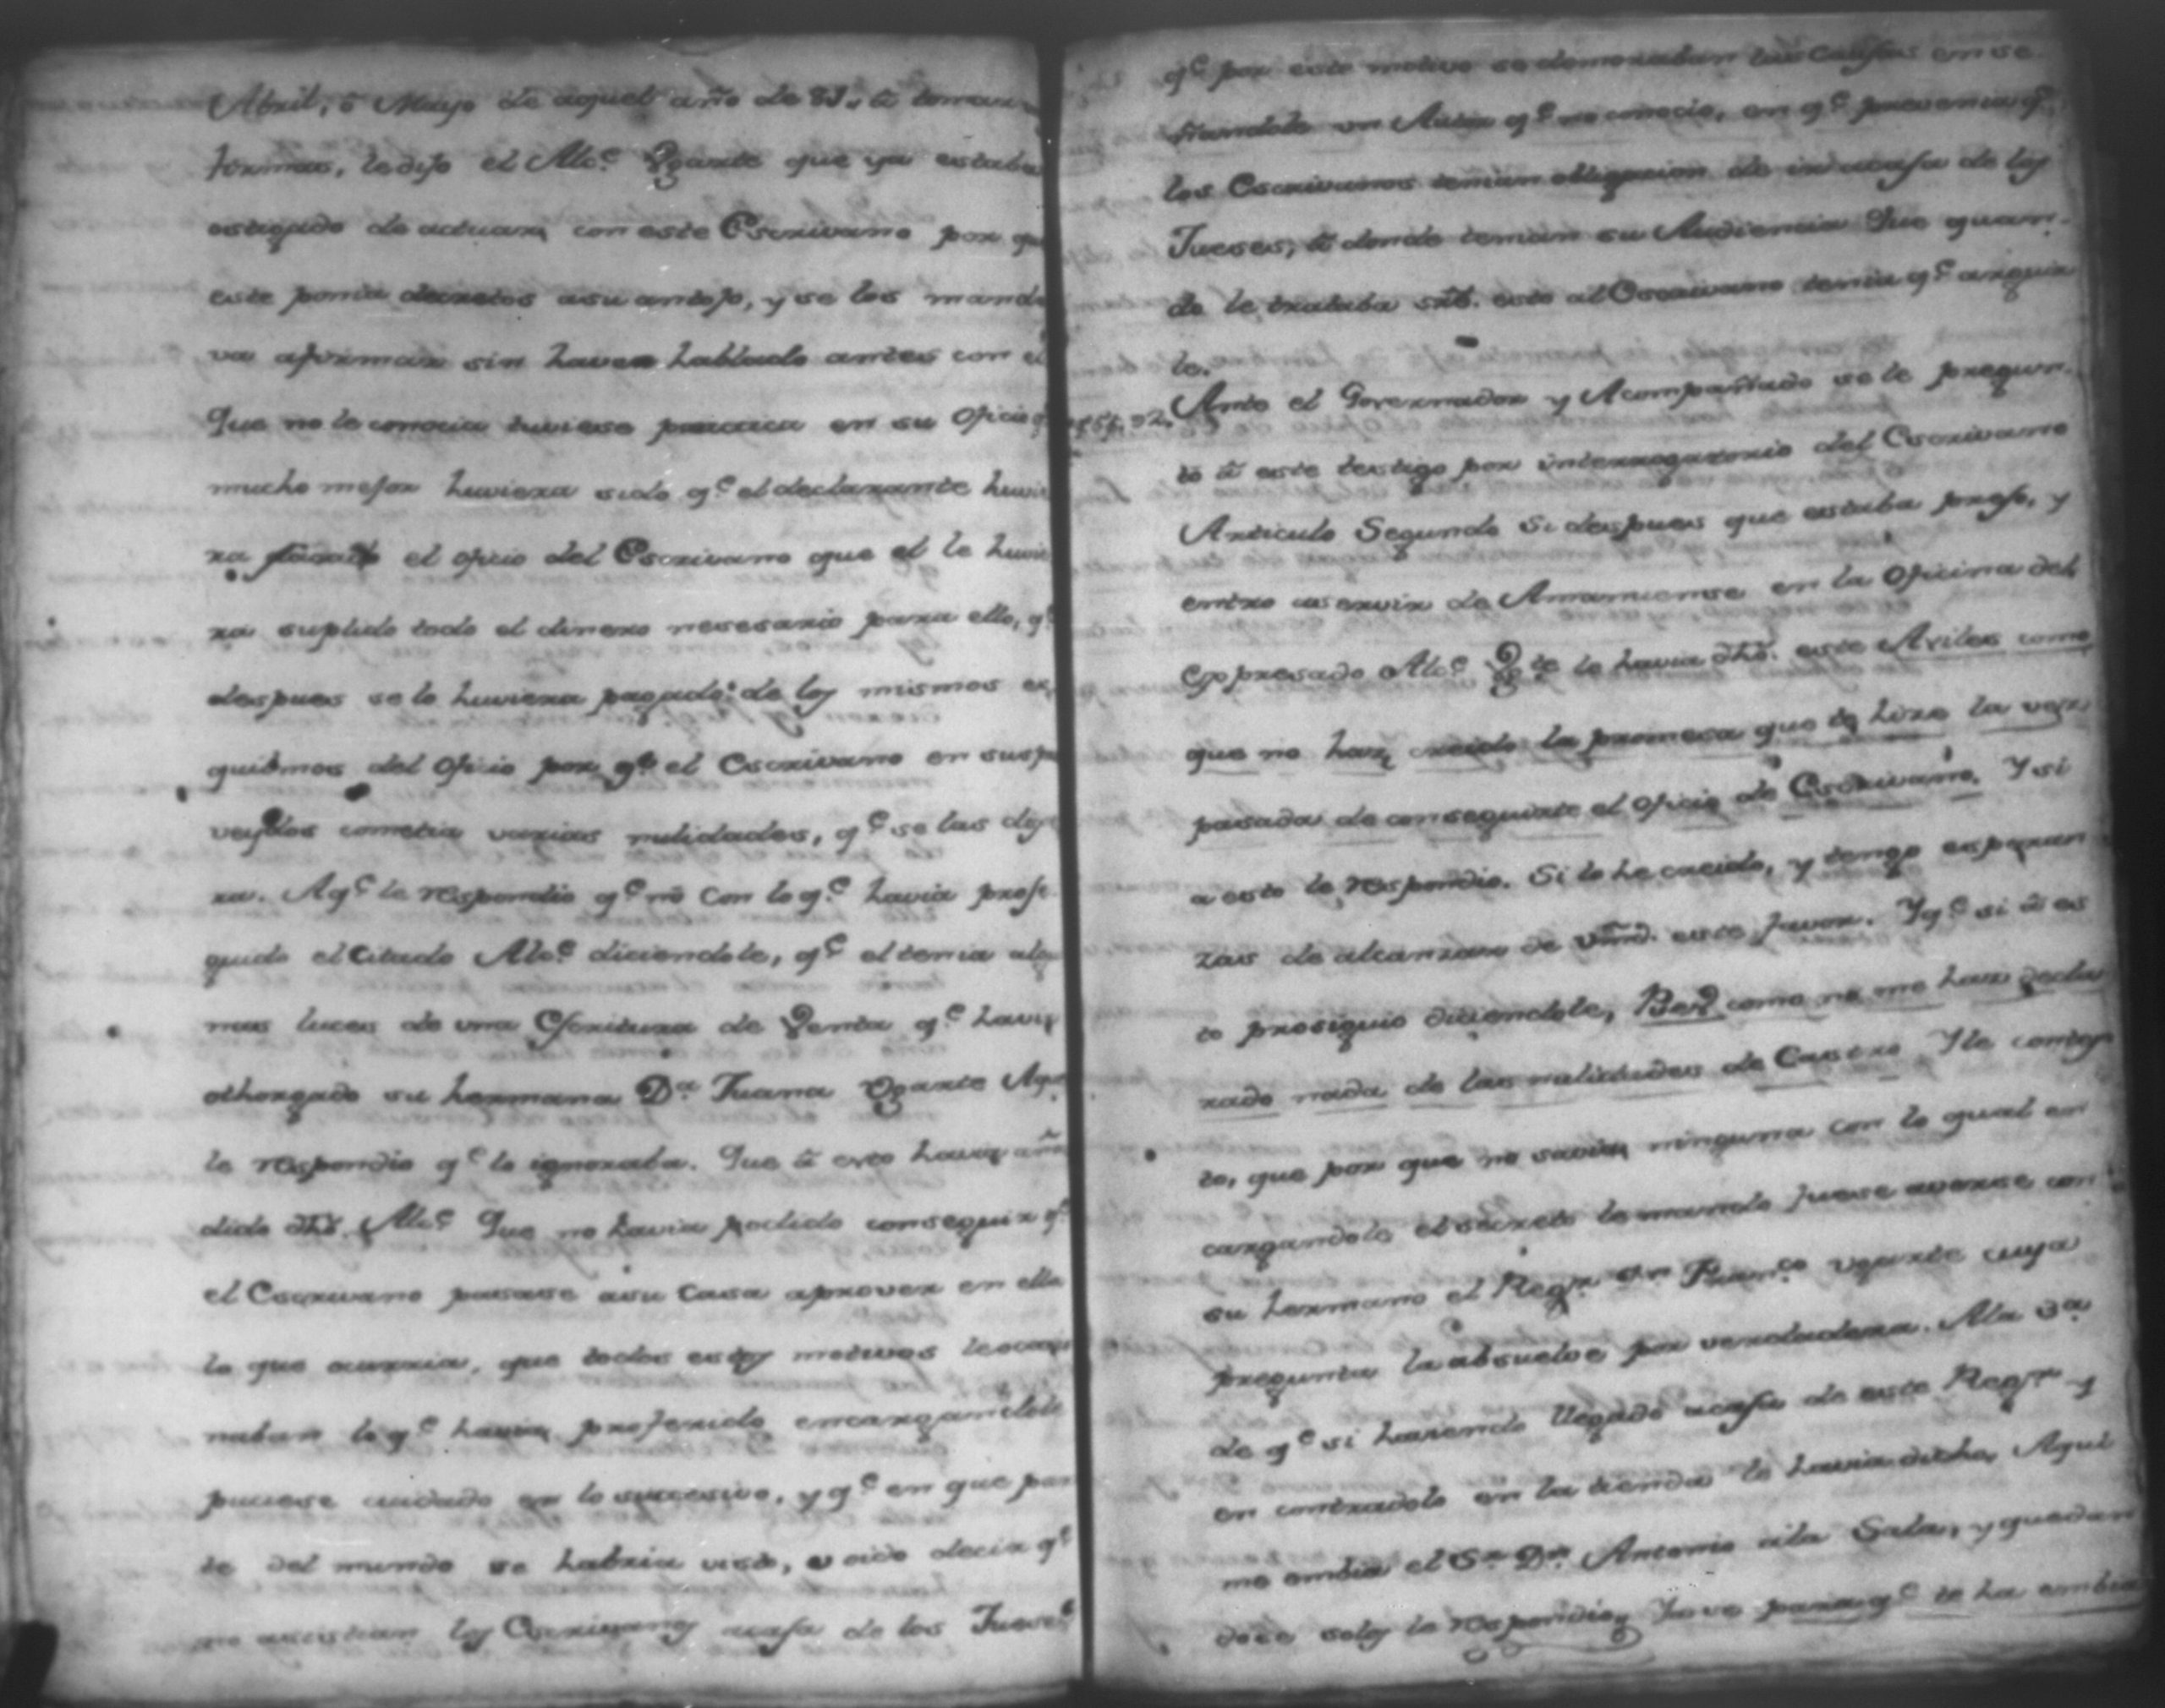 Abril, ó Mayo de aquel año de 81. â tomar
firmas, le dijo el Alc.e Vgarte que ya estaba
ostigado de actuar, con este Escrivano por qu
este ponia decretos asu antojo, y se los manda
va afirmar sin haver hablado antes con el
Que no le conocia tuviese practica en su Oficio q.
mucho mejor huviera sido q.e el declarante huvie
ra sacado el oficio del Escrivano que el le huvie
ra suplido todo el dinero nesesario para ello, q.e
despues se lo huviera pagado de los mismos es
quilmos del Oficio por q.e el Escrivano en sus
cometia varias nulidades, q.e se las dije
ra. Aq.e le respondio q.e nó Con lo q.e havia prose
guido el Citado Alc.e diciendole, q.e el tenia algu
nas luces de vna Escritura de Venta q.e havia
othorgado su hermana D.a Juana Vgarte Aque
le respondio q.e lo ignoraba. Que â esto havia aña
dido dhô. Alc.e Que no havia podido conseguir q.e
el Escrivano pasase asu Casa aproveer en ella
lo que ocurria, que todos estos motivos le ocacio
naban lo q.e havia proferido, encargandole
pusiese cuidado en lo succesivo, y q.e en que par
te del mundo se habria visto, u oido decir q.e
no asistian los Escrivanos acasa de los Jueses
q.e por este motivo se demoraban las causas ense
ñandole un Autor q.e no conocio, en q.e prevenia q.e
los Escrivanos tenian obligacion de ir acasa de los
Jueses, â donde tenian su Audiencia Que quan-
do le trataba srê. esto al Escrivano tenia q.e arguir
le.
Ante el Governador y Acompañado se le pregun-
tó â este testigo por interrogatorio del Escrivano
Articulo Segundo Si despues que estaba preso, y
entro aservir de Amanuense en la Oficina del
Expresado Alc.e Vg.te le havia dhô. este Aviles como
que no has creido la promesa que te hize la vez
pasada de conseguirte el Oficio de Escrivano. Y si
a esto le respondio. Si lo he creido, y tengo esperan
zas de alcanzar de Vmd. este favor. Yq.e si â es
to prosiguio diciendole, Bed como no me has decla
rado nada de las nulidades de Castro Yle contes
to, que por que no savia ninguna con lo qual en
cargandole el secreto lo mando fuese averse con
su hermano el Reg.or D.n Fran.co Vgarte cuya
pregunta la absuelve por verdadera. Ala 3.a
de q.e si haviendo llegado acasa de este Reg.or y
en contradolo en la tienda le havia dicho, Aqui
me embia el S.r D.n Antonio ala Sala, y quedan
dose solos le respondio, Jove para q.e te ha embia